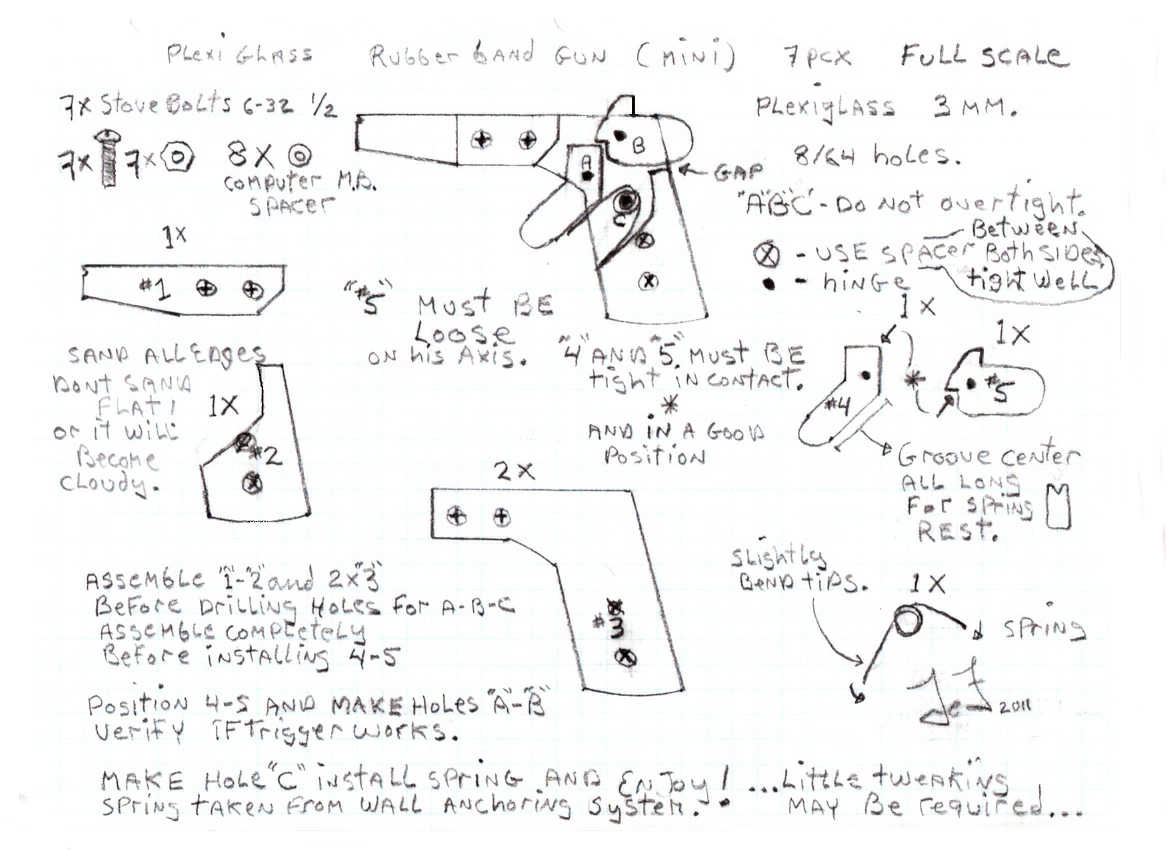 Plexi Glass Rubber band Gun (mini) 7pcx FULL SCALE
7x Stove Bolts 6-32 1/2
7x 7x 8x
computer M.B.
SPACER
Plexiglass 3 MM.
8/64 holes.
"A"B"C" - Do not overtight.
⊗ - USE SPACER Both sides
Between
tight well
• - hinge
A
B
C
GAP
1x
#1
"#5" Must BE
Loose
on his Axis.
"4" AND "5" Must BE
tight in contact.
*
AND in A GOOD
Position
1x
#4
*
1x
#5
Groove center
ALL LONG
For Spring
REST.
SAND ALL Edges
Dont SAND
FLAT!
or it will
Become
cloudy.
1x
#2
2x
#3
Slightly
Bend tips.
1x
Spring
2011
Assemble "1-2" and 2x"3"
Before Drilling Holes For A-B-C
Assemble completely
Before installing 4-5
Position 4-5 AND MAKE Holes "A-B"
Verify iF Trigger works.
MAKE Hole "C" install spring AND Enjoy! ...Little tweaking
Spring taken From WALL Anchoring System. MAY Be required...